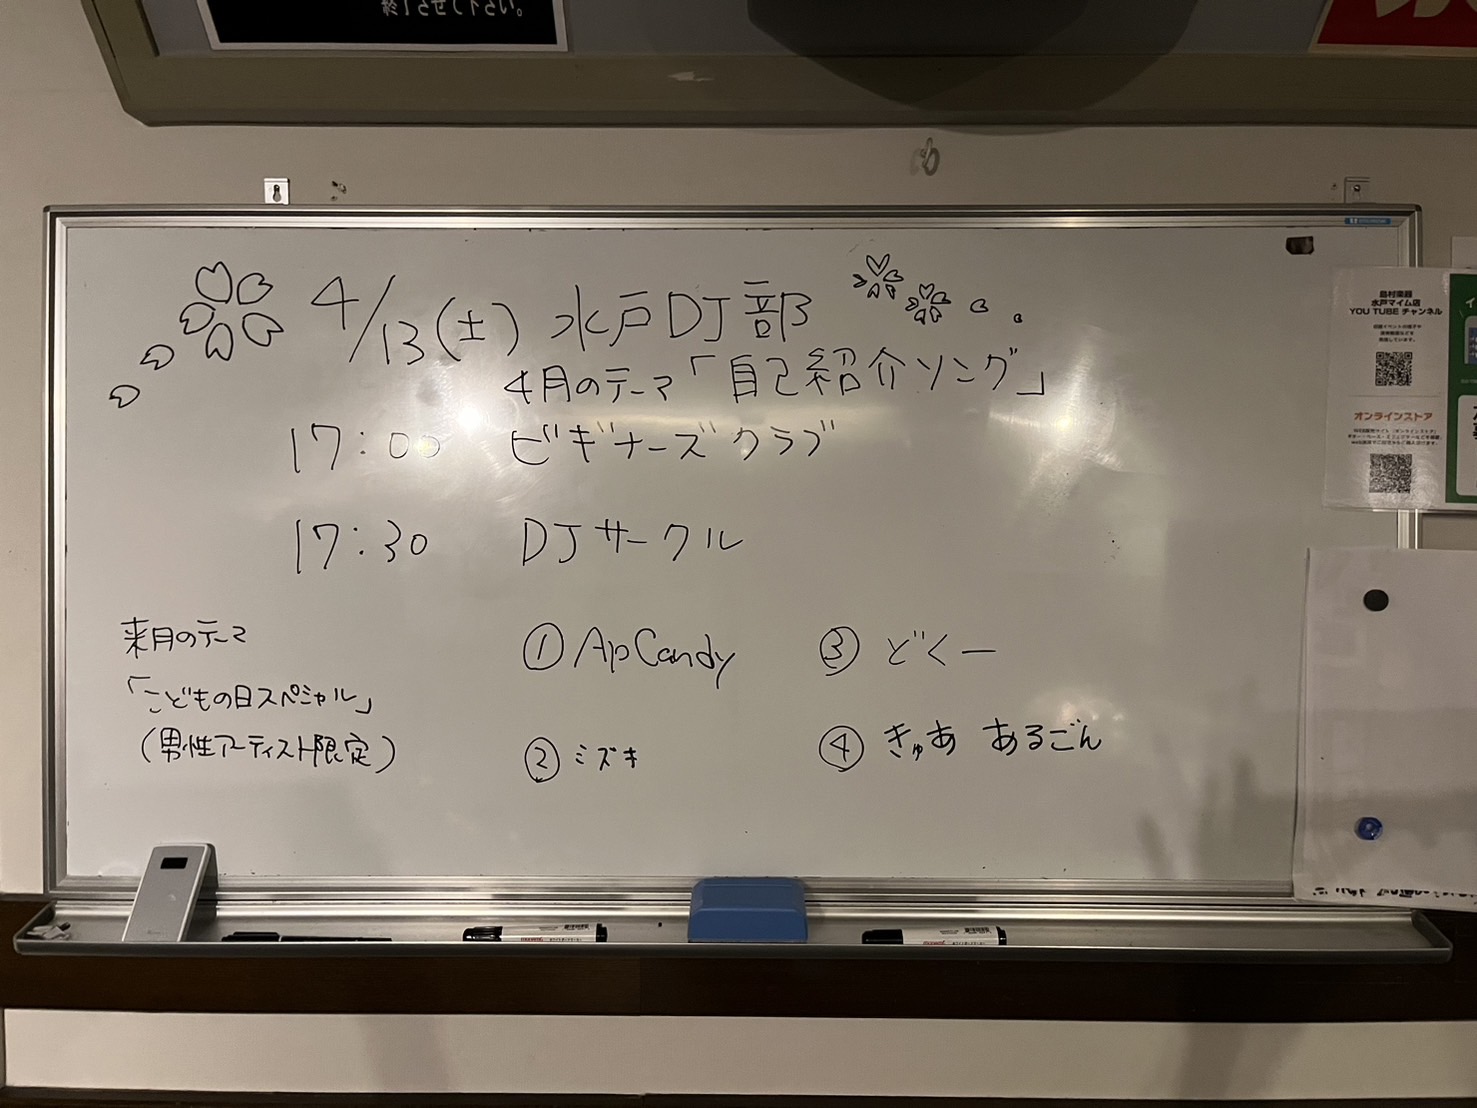 終了させて下さい。
4/13(土) 水戸DJ部
4月のテーマ「自己紹介ソング」
17:00 ビギナーズクラブ
17:30 DJサークル
来月のテーマ
「こどもの日スペシャル」
(男性アーティスト限定)
① ApCandy
② ミズキ
③ どくー
④ きゅあ あるごん
島村楽器
水戸マイム店
YOU TUBE チャンネル
オンラインストア